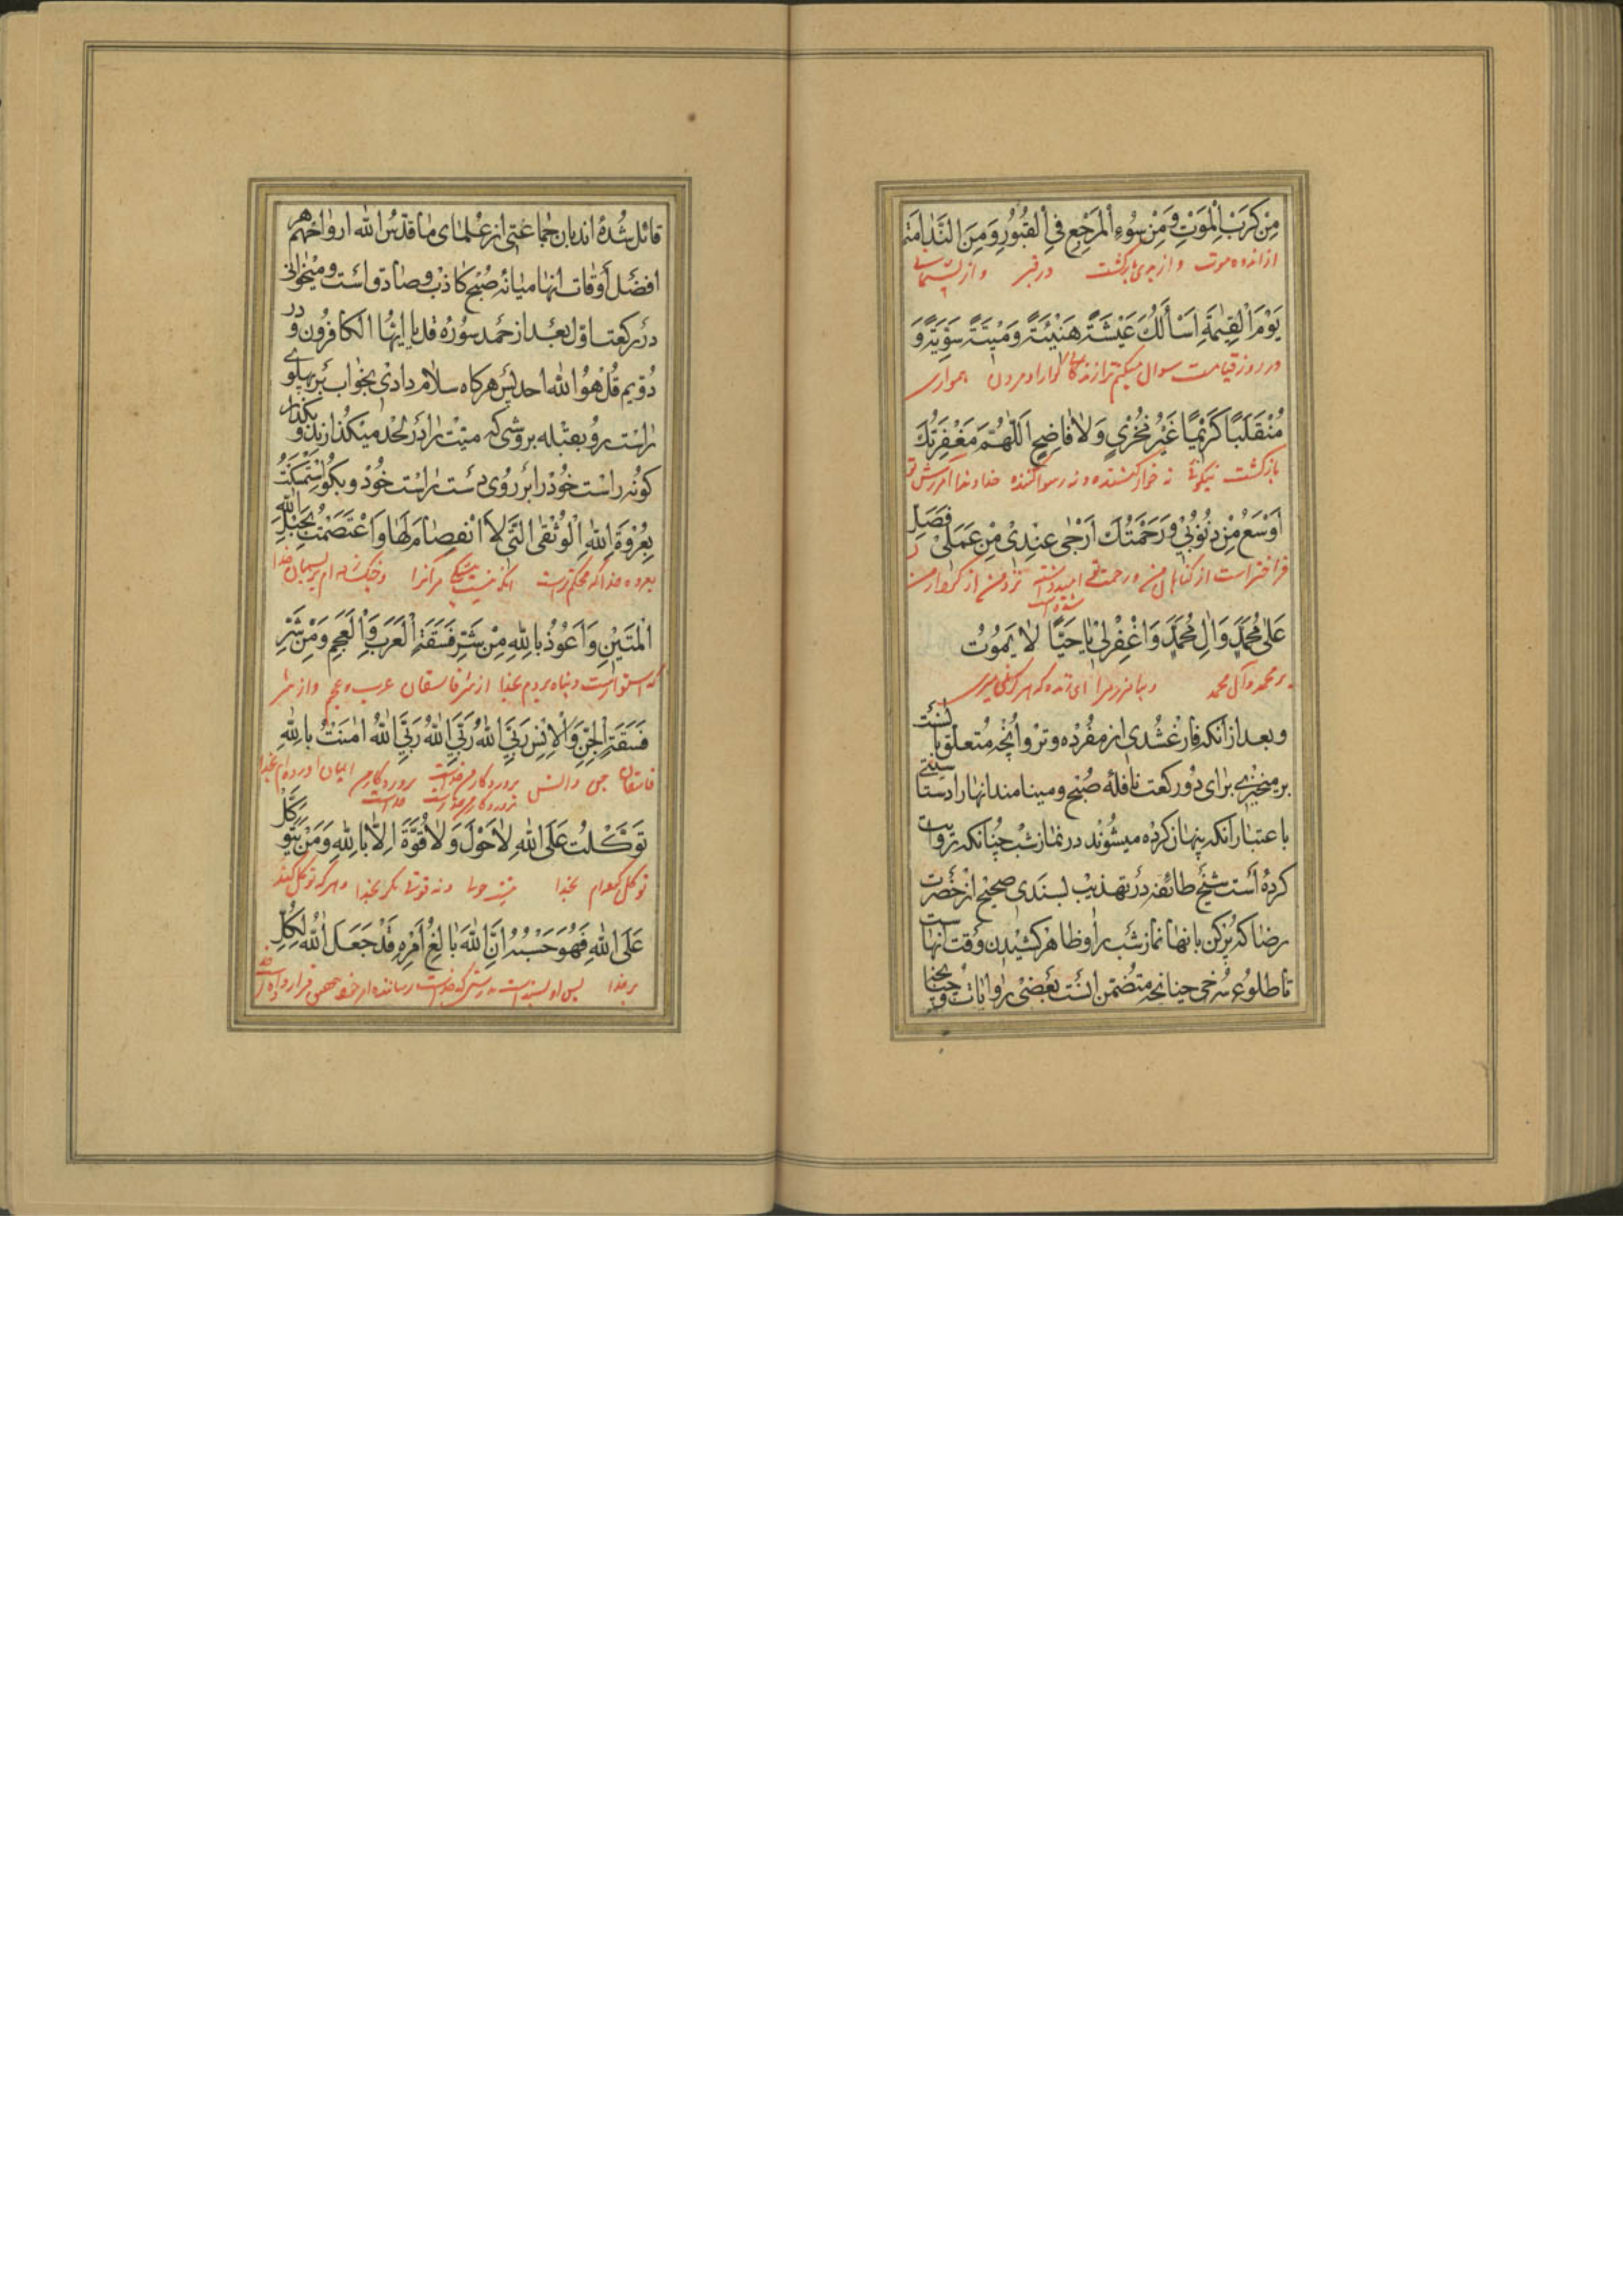 مِنْ كَرَبِ الْمَوْتِ وَمِنْ سُوءِ الْمَرْجِعِ فِي الْقُبُورِ وَمِنَ النَّدَامَةِ
از اندوه موت و از بدی بازگشت در قبر و از پشیمانی
يَوْمَ الْقِيٰمَةِ اَسْأَلُكَ عَيْشَةً هَنِيْئَةً وَمَيْتَةً سَوِيَّةً وَ
در روز قیامت سوال میکنم ترا زندگانی گوارا و مردن همواری
مُنْقَلَبًا كَرِيْمًا غَيْرَ مُخْزِيٍ وَلَا فَاضِحٍ اَللّٰهُمَّ مَغْفِرَتُكَ
بازگشت نیکوئی نه خوار کننده و نه رسوا کننده خداوندا امرزش تو
اَوْسَعُ مِنْ ذُنُوْبِيْ وَرَحْمَتُكَ اَرْجٰى عِنْدِيْ مِنْ عَمَلِيْ فَصَلِّ
فراختر است از گناهان من و رحمت تو امید داشته شده تر است نزد من از کردار من
عَلٰى مُحَمَّدٍ وَاٰلِ مُحَمَّدٍ وَاغْفِرْ لِيْ يَا حَيًّا لَا يَمُوْتُ
بر محمد و آل محمد و بیامرز مرا ای زنده که هرگز نمی میری
و بعد از انکه فارغ شدی از مفرده وتر و انچه متعلق باوست
برمیخیزی برای دو رکعت نافلهٔ صبح و مینامند انها را دستا
باعتبار انکه پنهان کرده میشوند در نماز شب چنانکه روایت
کرده است شیخ طائفه در تهذیب بسندی صحیح از حضرت
رضا که پرکن بانها نماز شب را و ظاهر کشیدن وقت انهاست
تا طلوع سرخی چنانچه متضمن انست بعضی روایات و چنانچه
قائل شده اند بان جماعتی از علمای ما قدس الله ارواحهم
افضل اوقات انها میانه صبح کاذب و صادق است و میخوانی
در رکعت اول بعد از حمد سوره قل یا ایها الکافرون و در
دویم قل هو الله احد پس هرکاه سلام دادی بخواب بر پهلوی
راست رو بقبله بروشی که میت را در لحد میکذارند و بکذار
کونه راست خود را بر روی دست راست خود و بکو اِسْتَمْسَكْتُ
بِعُرْوَةِ اللّٰهِ الْوُثْقَى الَّتِيْ لَا انْفِصَامَ لَهَا وَاعْتَصَمْتُ بِحَبْلِ اللّٰهِ
بعروه خدا که محکم تر است انکه نیست شکستگی مر انرا و چنگ زده ام بریسمان خدا
الْمَتِيْنِ وَاَعُوْذُ بِاللّٰهِ مِنْ شَرِّ فَسَقَةِ الْعَرَبِ وَالْعَجَمِ وَمِنْ شَرِّ
که استوار است و پناه بردم بخدا از شر فاسقان عرب و عجم و از شر
فَسَقَةِ الْجِنِّ وَالْاِنْسِ رَبِّيَ اللّٰهُ رَبِّيَ اللّٰهُ رَبِّيَ اللّٰهُ اٰمَنْتُ بِاللّٰهِ
فاسقان جن و انس پروردکار من خداست پروردکار من خداست پروردکار من خداست ایمان اورده ام بخدا
تَوَكَّلْتُ عَلَى اللّٰهِ لَا حَوْلَ وَلَا قُوَّةَ اِلَّا بِاللّٰهِ وَمَنْ يَتَوَكَّلْ
توکل کرده ام بخدا نیست حولی و نه قوتی مکر بخدا و هر که توکل کند
عَلَى اللّٰهِ فَهُوَ حَسْبُهُ اِنَّ اللّٰهَ بَالِغُ اَمْرِهٖ قَدْ جَعَلَ اللّٰهُ لِكُلِّ
بر خدا پس او بسنده است بدرستی که خداست رساننده امر خود بتحقیق قرار داده